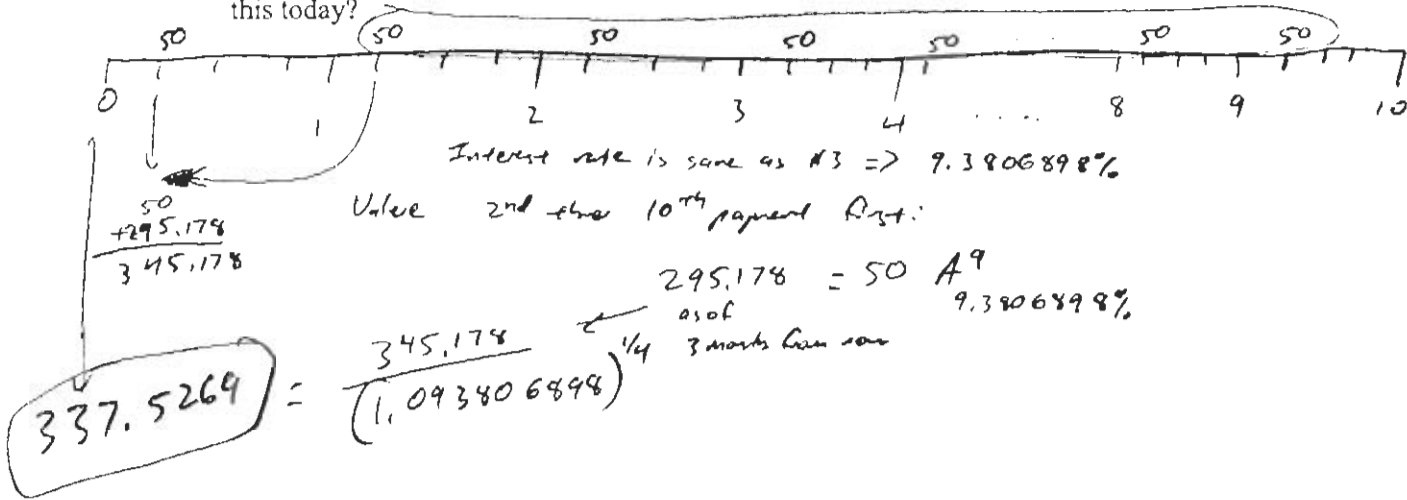 this today?
50 50 50 50 50 50 50
0 1 2 3 4 .... 8 9 10
Interest rate is same as #3 => 9.3806898%
Value 2nd thru 10th payment first:
50
+295.178
345.178
295.178 = 50 A 9 9.3806898%
as of
3 months from now
337.5269 = 345.178 / (1.093806898)^1/4